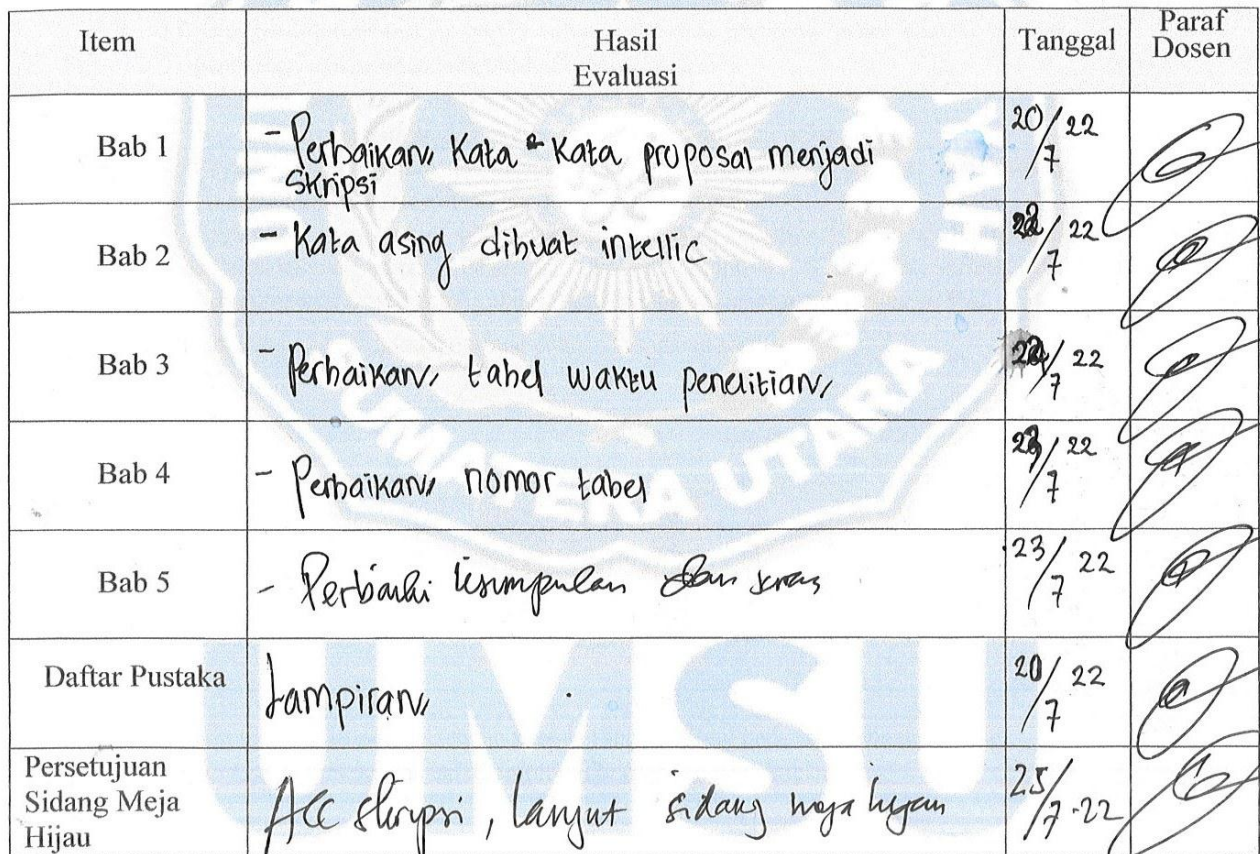 Item Hasil Tanggal Paraf
Evaluasi Dosen
Bab 1 - Perbaikan Kata - Kata proposal menjadi 20/7 22
skripsi
Bab 2 - Kata asing dibuat intellic /7 22
Bab 3 - Perbaikan tabel waktu penelitian /7 22
Bab 4 - Perbaikan nomor tabel /7 22
Bab 5 - Perbaiki kesimpulan dan saran 23/7 22
Daftar Pustaka Lampiran 20/7 22
Persetujuan
Sidang Meja ACC skripsi, lanjut sidang meja hijau 25/7-22
Hijau
SUMATERA UTARA
UMSU